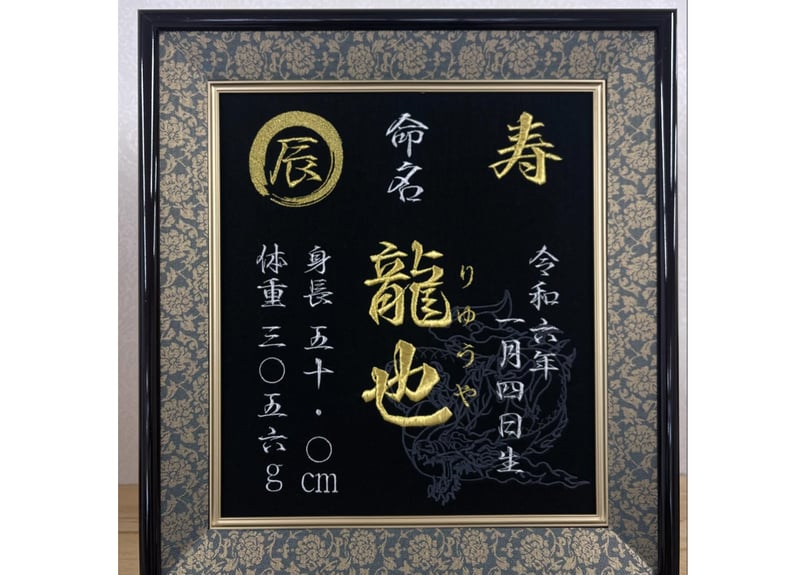 寿
令和六年
一月四日生
命名
龍也
りゅうや
辰
身長 五十・〇cm
体重 三〇五六g